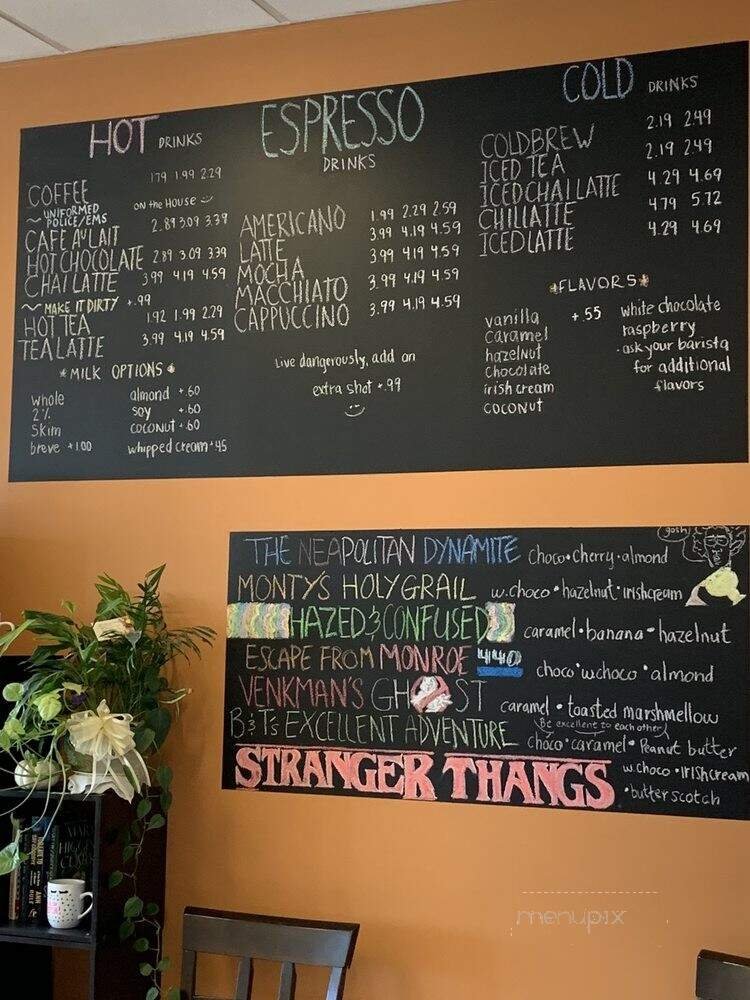 HOT DRINKS
COFFEE 1.79 1.99 2.29
~ UNIFORMED POLICE/EMS on the House
CAFE AU LAIT 2.89 3.09 3.39
HOT CHOCOLATE 2.89 3.09 3.39
CHAI LATTE 3.99 4.19 4.59
~ MAKE IT DIRTY +.99
HOT TEA 1.92 1.99 2.29
TEA LATTE 3.99 4.19 4.59
*MILK OPTIONS*
whole
2%
skim
breve +1.00
almond +.60
soy +.60
coconut +.60
whipped cream +.45
ESPRESSO
DRINKS
AMERICANO 1.99 2.29 2.59
LATTE 3.99 4.19 4.59
MOCHA 3.99 4.19 4.59
MACCHIATO 3.99 4.19 4.59
CAPPUCCINO 3.99 4.19 4.59
Live dangerously, add an
extra shot +.99
COLD DRINKS
COLDBREW 2.19 2.49
ICED TEA 2.19 2.49
ICED CHAI LATTE 4.29 4.69
CHILLATTE 4.79 5.72
ICED LATTE 4.29 4.69
*FLAVORS*
vanilla +.55
caramel
hazelnut
chocolate
irish cream
coconut
white chocolate
raspberry
-ask your barista
for additional
flavors
gosh!
THE NEAPOLITAN DYNAMITE choco•cherry•almond
MONTY'S HOLY GRAIL w.choco•hazelnut•irishcream
HAZED & CONFUSED caramel•banana•hazelnut
ESCAPE FROM MONROE 440 choco•wchoco•almond
VENKMAN'S GHOST caramel•toasted marshmellow
B&T's EXCELLENT ADVENTURE choco•caramel•Peanut butter
Be excellent to each other
STRANGER THANGS w.choco•irishcream
•butterscotch
menupix